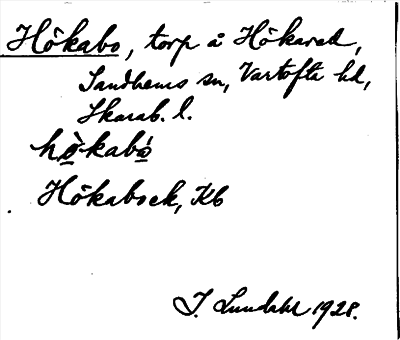 Hökabo, torp å Hökared,
Sandhems sn, Vartofta hd,
Skarab. l.
hö̀kabó
Hökaboek, Kb
I. Lundahl 1928.